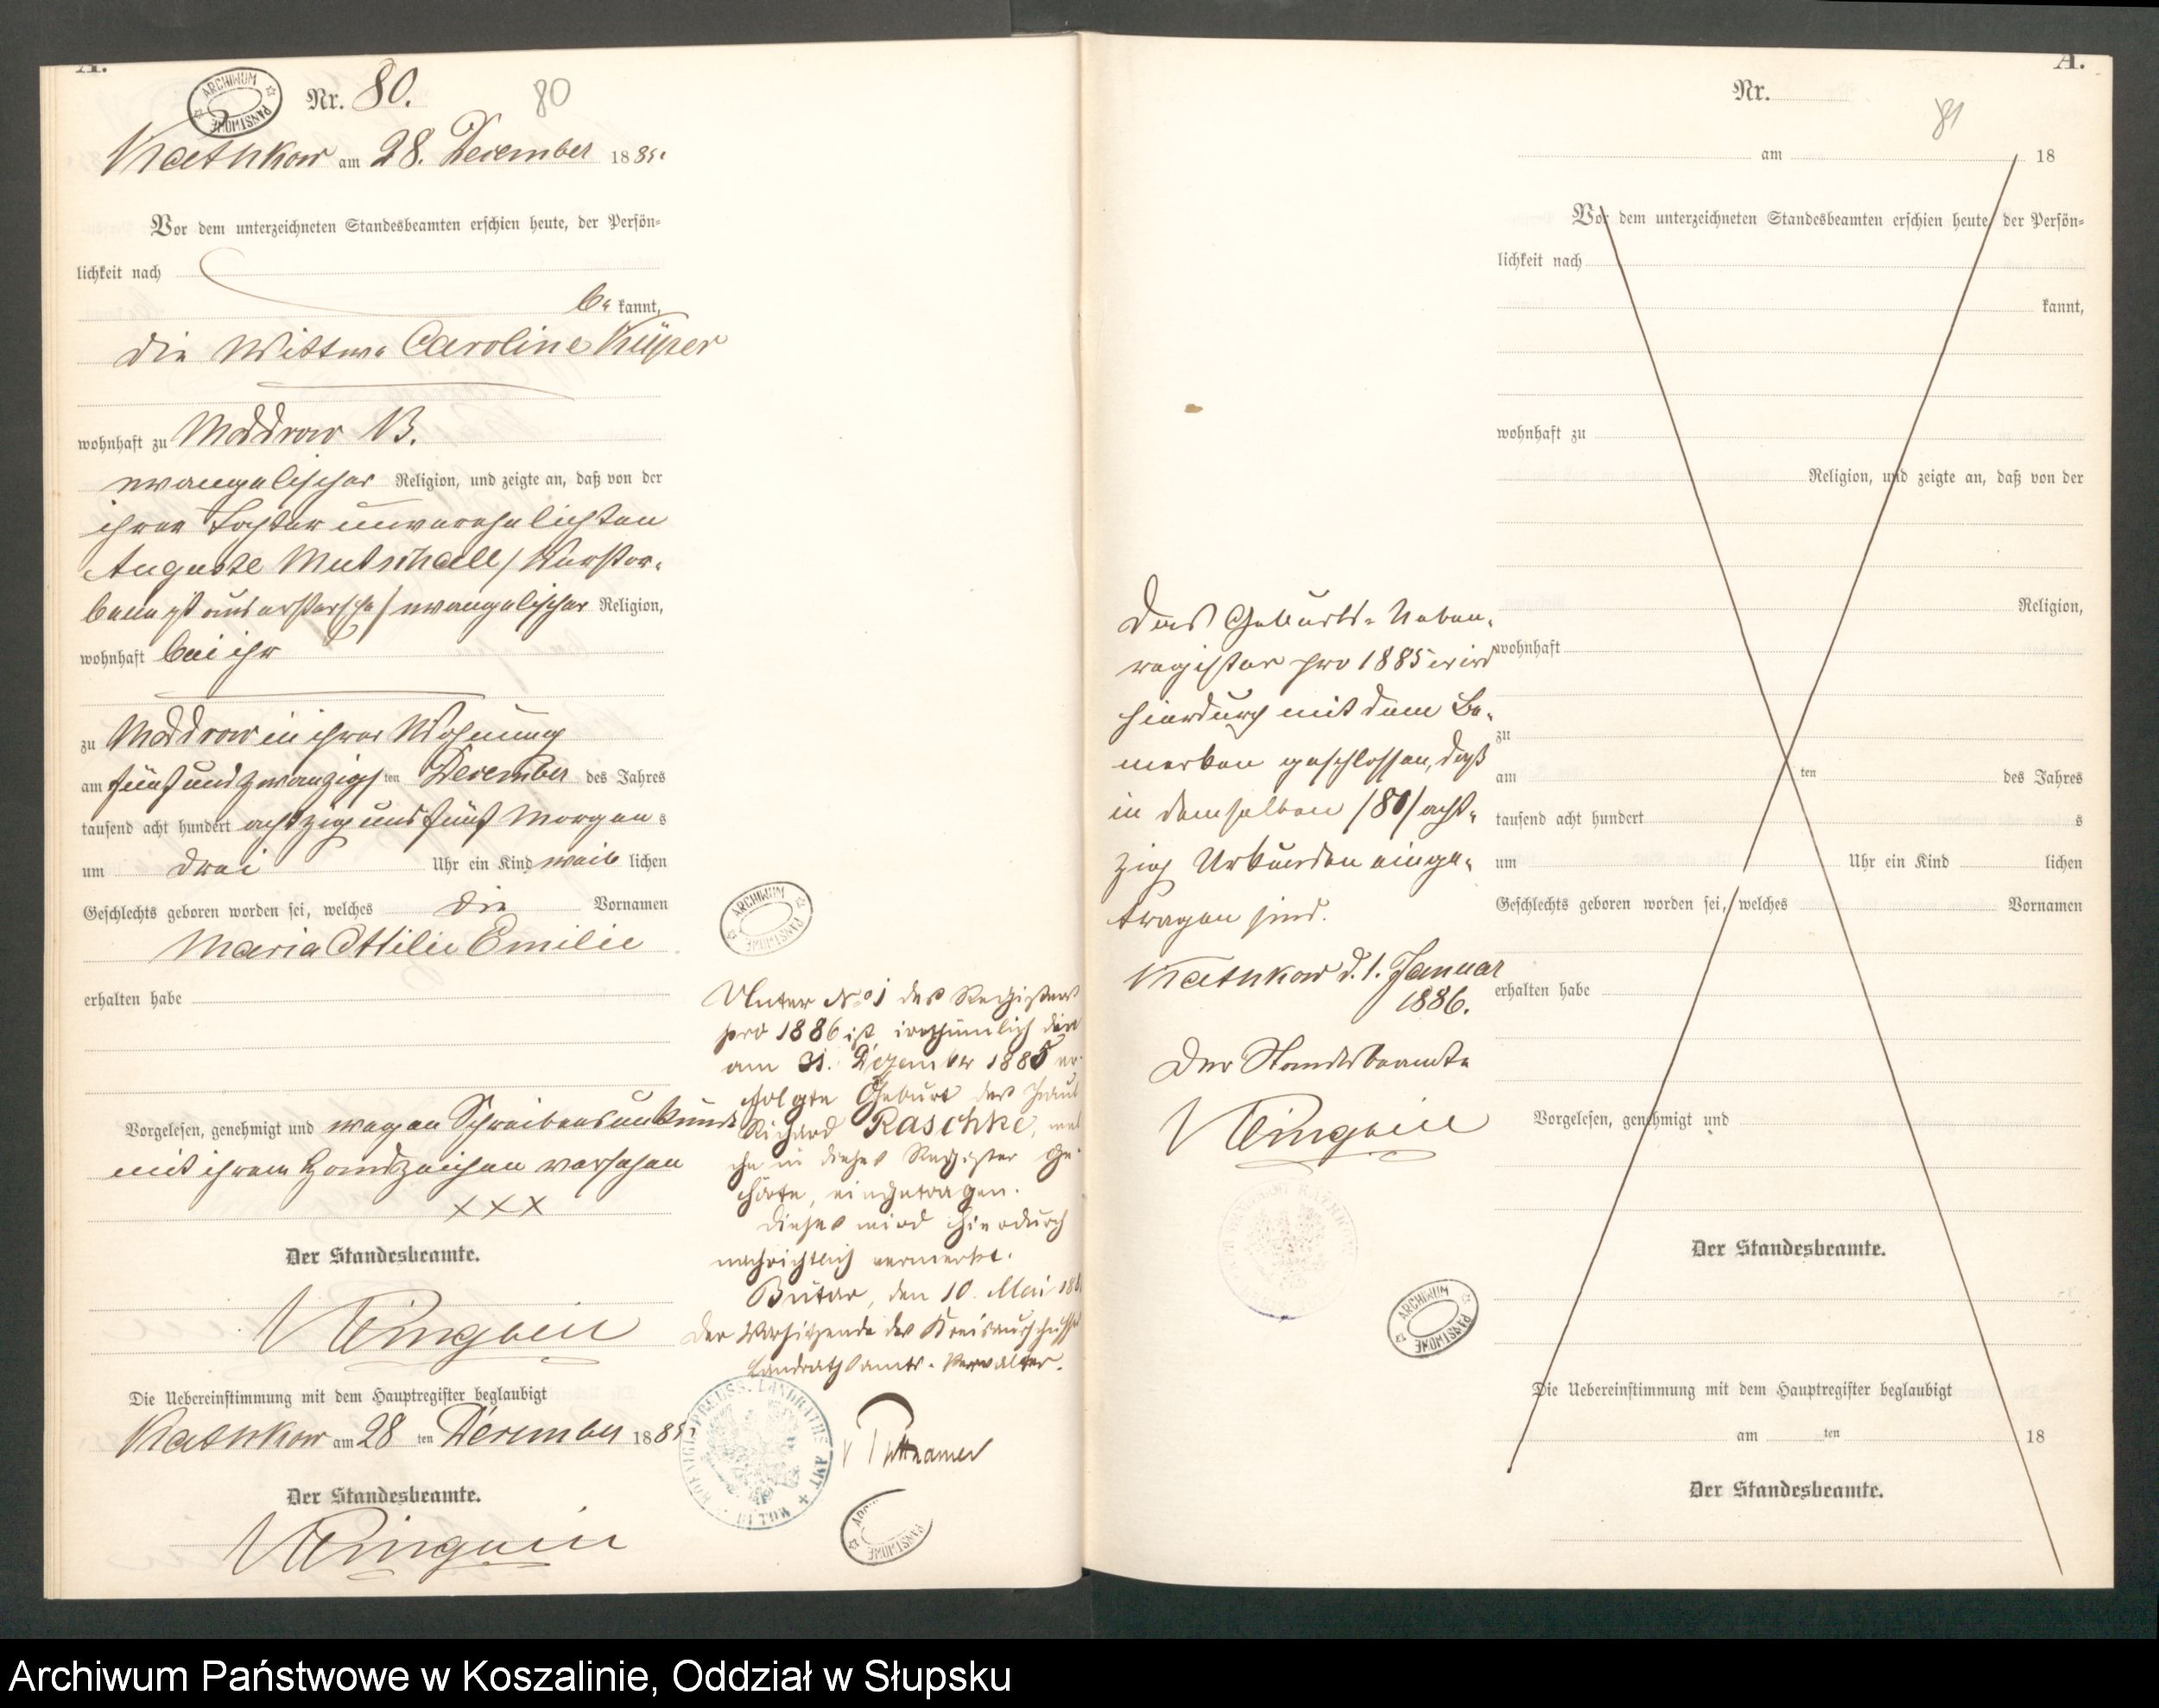 A.
Nr. 80.
80
ARCHIWUM PAŃSTWOWE
Kathkow am 28. December 1885.
Vor dem unterzeichneten Standesbeamten erschien heute, der Persön-
lichkeit nach
be kannt,
die Wittwe Caroline Küper
wohnhaft zu Moddrow B.
evangelischer Religion, und zeigte an, daß von der
ihrer Tochter unverehelichten
Auguste Mutschall / Verstor-
bene ist aus erster Ehe / evangelischer Religion,
wohnhaft bei ihr
zu Moddrow in ihrer Wohnung
am fünfundzwanzigsten December des Jahres
tausend acht hundert achtzig und fünf Morgens
um drei Uhr ein Kind weiblichen
Geschlechts geboren worden sei, welches die Vornamen
Maria Ottilie Emilie
erhalten habe
Vorgelesen, genehmigt und wegen Schreibensunkunde
mit ihrem Handzeichen versehen
XXX
Der Standesbeamte.
Die Uebereinstimmung mit dem Hauptregister beglaubigt
Kathkow am 28 ten December 1885.
Der Standesbeamte.
ARCHIWUM PAŃSTWOWE
Unter No 1 des Registers
pro 1886 ist irrthümlich die
am 31. Dezember 1885 er-
folgte Geburt des Paul
Richard Raschke, wel
che in dieses Register ge-
hörte, eingetragen.
Dieses wird hierdurch
nachrichtlich vermerkt.
Bütow, den 10. Mai 188
Der Vorsitzende des Kreisausschusses
Landrathsamts-Verwalter.
v Puttkamer
KÖNIGL. PREUSS. LANDRATHS AMT BÜTOW
ARCHIWUM PAŃSTWOWE
Das Geburts-Neben-
register pro 1885 wird
hierdurch mit dem Be-
merken geschlossen, daß
in demselben /80/ acht-
zig Urkunden einge-
tragen sind.
Kathkow d. 1. Januar
1886.
Der Standesbeamte
ARCHIWUM PAŃSTWOWE
A.
Nr.
81
am 18
Vor dem unterzeichneten Standesbeamten erschien heute, der Persön-
lichkeit nach
kannt,
wohnhaft zu
Religion, und zeigte an, daß von der
Religion,
wohnhaft
zu
am ten des Jahres
tausend acht hundert s
um Uhr ein Kind lichen
Geschlechts geboren worden sei, welches Vornamen
erhalten habe
Vorgelesen, genehmigt und
Der Standesbeamte.
Die Uebereinstimmung mit dem Hauptregister beglaubigt
am ten 18
Der Standesbeamte.
Archiwum Państwowe w Koszalinie, Oddział w Słupsku